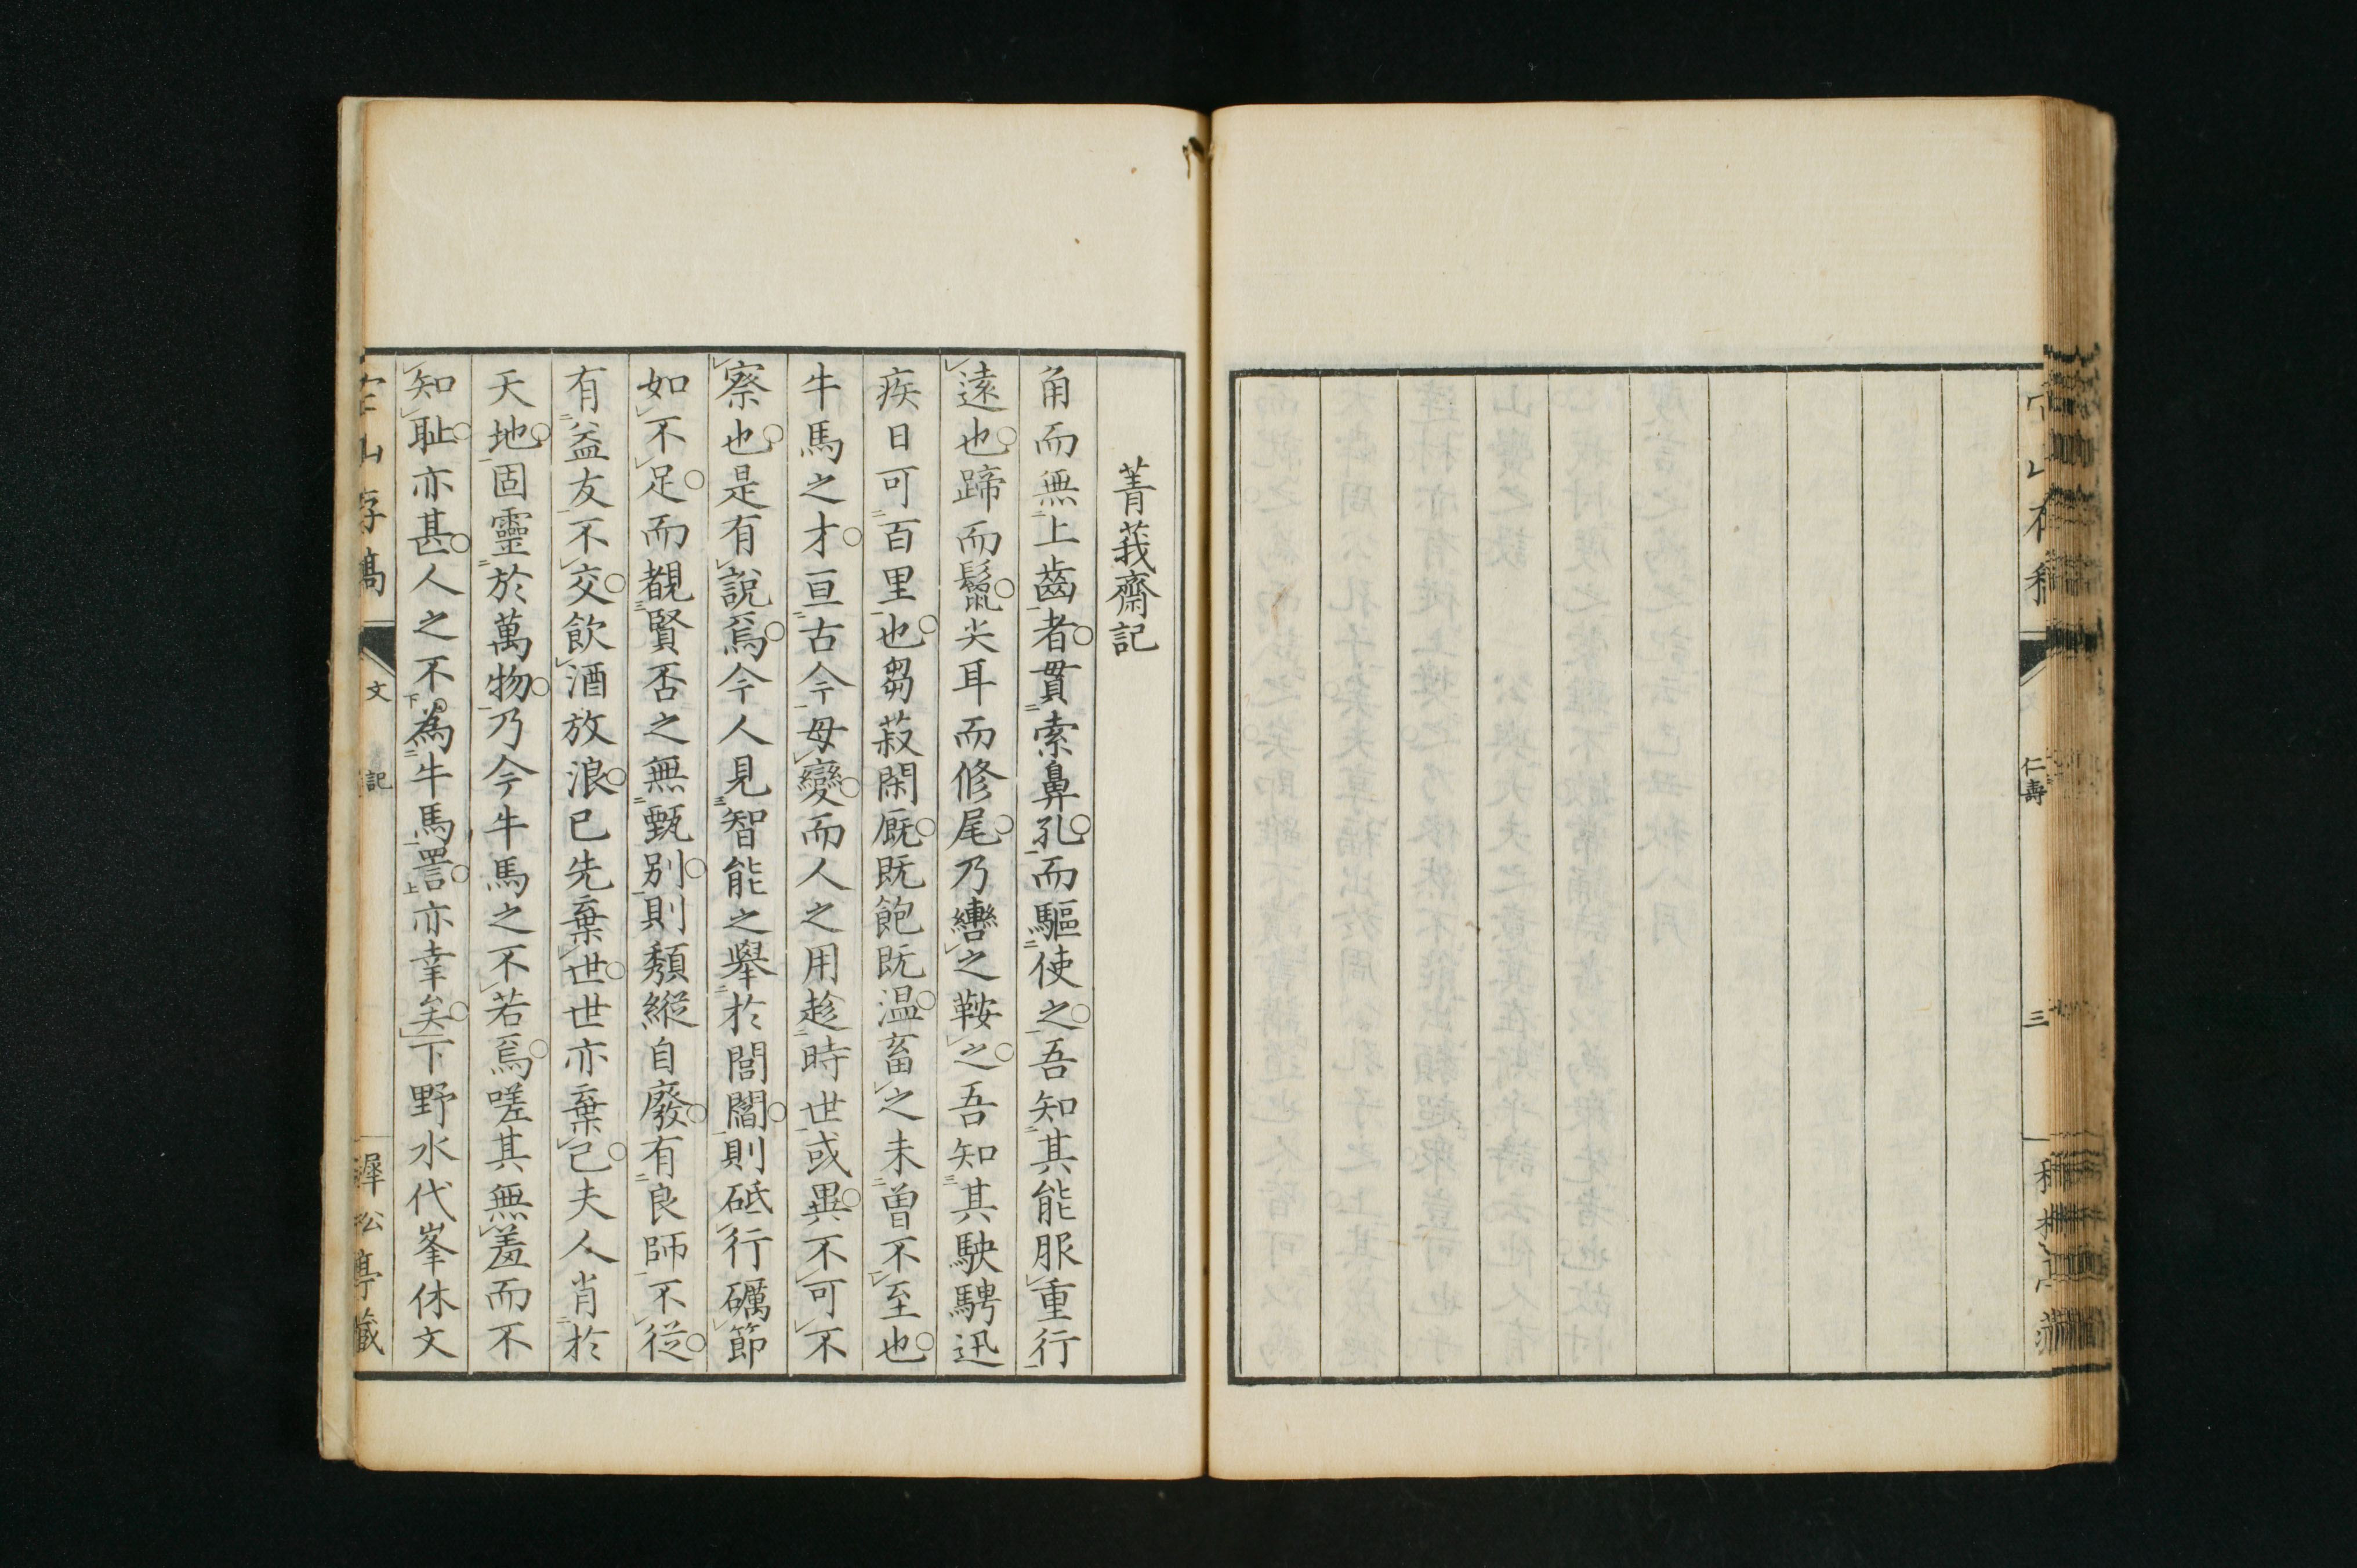 仁壽
三
菁莪齋記
角而無上齒者貫索鼻孔而驅使之吾知其能服重行
遠也蹄而鬣尖耳而修尾乃轡之鞍之吾知其駚騁迅
疾日可百里也芻菽閑厩既飽既温畜之未曽不至也
牛馬之才亘古今毋變而人之用趁時世或異不可不
察也是有說焉今人見智能之舉於閭閻則砥行礪節
如不足而覩賢否之無甄别則頽縱自廢有良師不從
有益友不交飲酒放浪已先棄世世亦棄己夫人肖於
天地固靈於萬物乃今牛馬之不若焉嗟其無羞而不
知耻亦甚人之不為牛馬詈亦幸矣下野水代峯休文
文
記